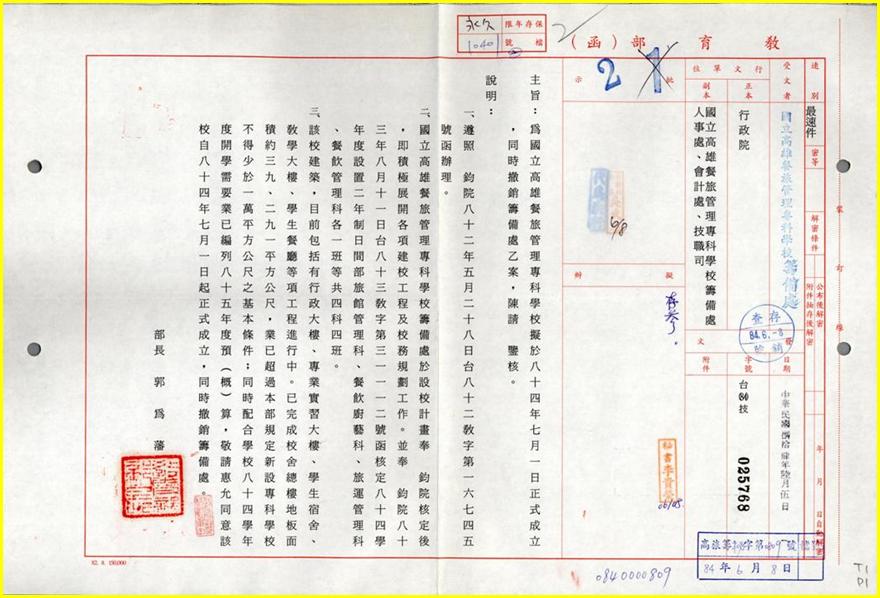 保存年限
永久
檔號
1040
教育部（函）
速別
最速件
密等
解密條件
公布後解密
附件抽存後解密
年 月 日自動解密
裝
訂
線
受文者
國立高雄餐旅管理專科學校籌備處
行文單位
正本
行政院
副本
國立高雄餐旅管理專科學校籌備處
人事處、會計處、技職司
發文
日期
中華民國捌拾肆年陸月伍日
字號
台84技
025768
附件
存查
84.6.-8
批示
21
擬辦
存參。
6/8
秘書李貴榮
主旨：為國立高雄餐旅管理專科學校擬於八十四年七月一日正式成立
，同時撤銷籌備處乙案，陳請　鑒核。
說明：
一、遵照　鈞院八十二年五月二十八日台八十二教字第一六七四五
號函辦理。
二、國立高雄餐旅管理專科學校籌備處於設校計畫奉　鈞院核定後
，即積極展開各項建校工程及校務規劃工作。並奉　鈞院八十
三年八月十一日台八十三教字第三一一一二號函核定八十四學
年度設置二年制日間部旅館管理科、餐飲廚藝科、旅運管理科
、餐飲管理科各一班等共四科四班。
三、該校建築，目前包括有行政大樓、專業實習大樓、學生宿舍、
教學大樓、學生餐廳等項工程進行中。已完成校舍總樓地板面
積約三九、二九一平方公尺，業已超過本部規定新設專科學校
不得少於一萬平方公尺之基本條件；同時配合學校八十四學年
度開學需要業已編列八十五年度預（概）算，敬請惠允同意該
校自八十四年七月一日起正式成立，同時撤銷籌備處。
部長　郭為藩
84年6月8日
0840000809
82. 8. 150,000
T1
D1